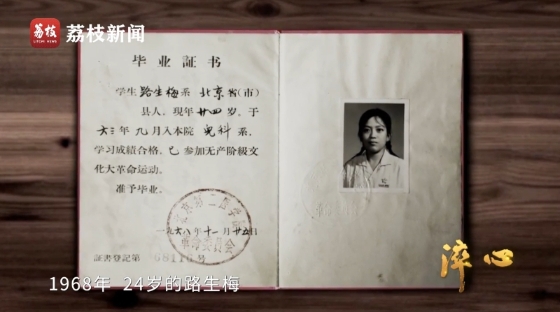 荔枝新闻
LITCHI NEWS
毕业証书
学生路生梅系北京省(市)
县人，現年廿四岁，于
六三年九月入本院儿科系，
学习成績合格。已参加无产阶级文
化大革命运动。
准予毕业。
北京第二医学院
革命委员会
一九六八年十一月廿五日
証書登記第68110号
1968年 24岁的路生梅
淬心